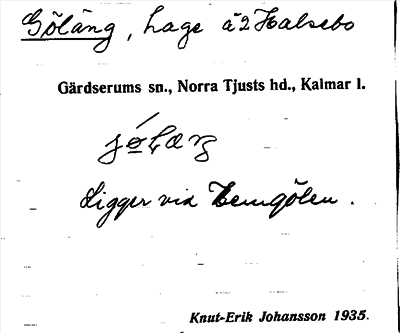 Göläng, hage å 2 Halsebo
Gärdserums sn., Norra Tjusts hd., Kalmar l.
Ligger vid Hemgölen.
Knut-Erik Johansson 1935.